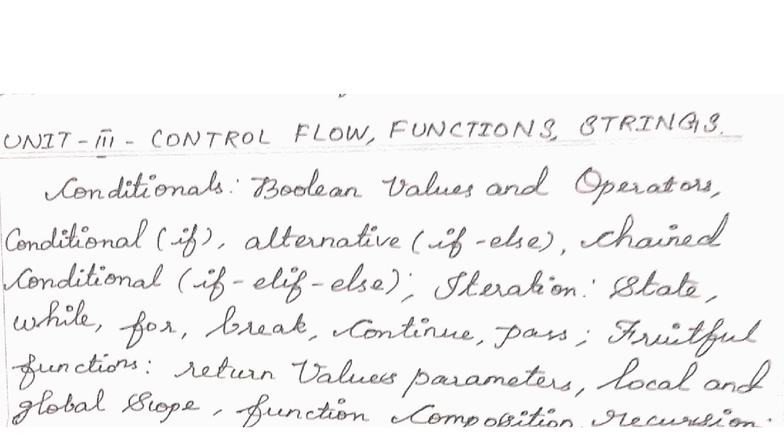 UNIT - iii - CONTROL FLOW, FUNCTIONS, STRINGS.
Conditionals: Boolean Values and Operators,
Conditional (if), alternative (if-else), chained
Conditional (if-elif-else); Iteration: State,
while, for, break, Continue, pass; Fruitful
functions: return Values parameters, local and
global Scope, function Composition recursion.